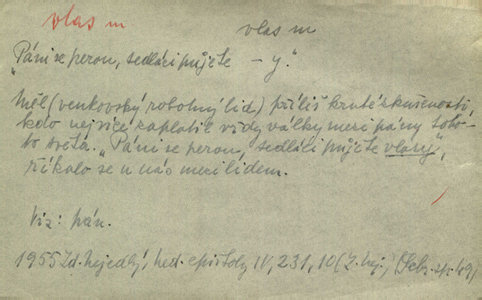 vlas m
vlas m
"Páni se perou, sedláci půjčte — y."
Měl (venkovský robotný lid) příliš kruté zkušenosti,
kdo nejvíce zaplatil vždy války mezi pány toho-
to světa. "Páni se perou, sedláci půjčte vlasy",
říkalo se u nás mezi lidem.
Viz: pán.
1955 Zd. Nejedlý, Ned. epištoly IV, 231, 10 (Z. Nej., Sebr. sp. 49)